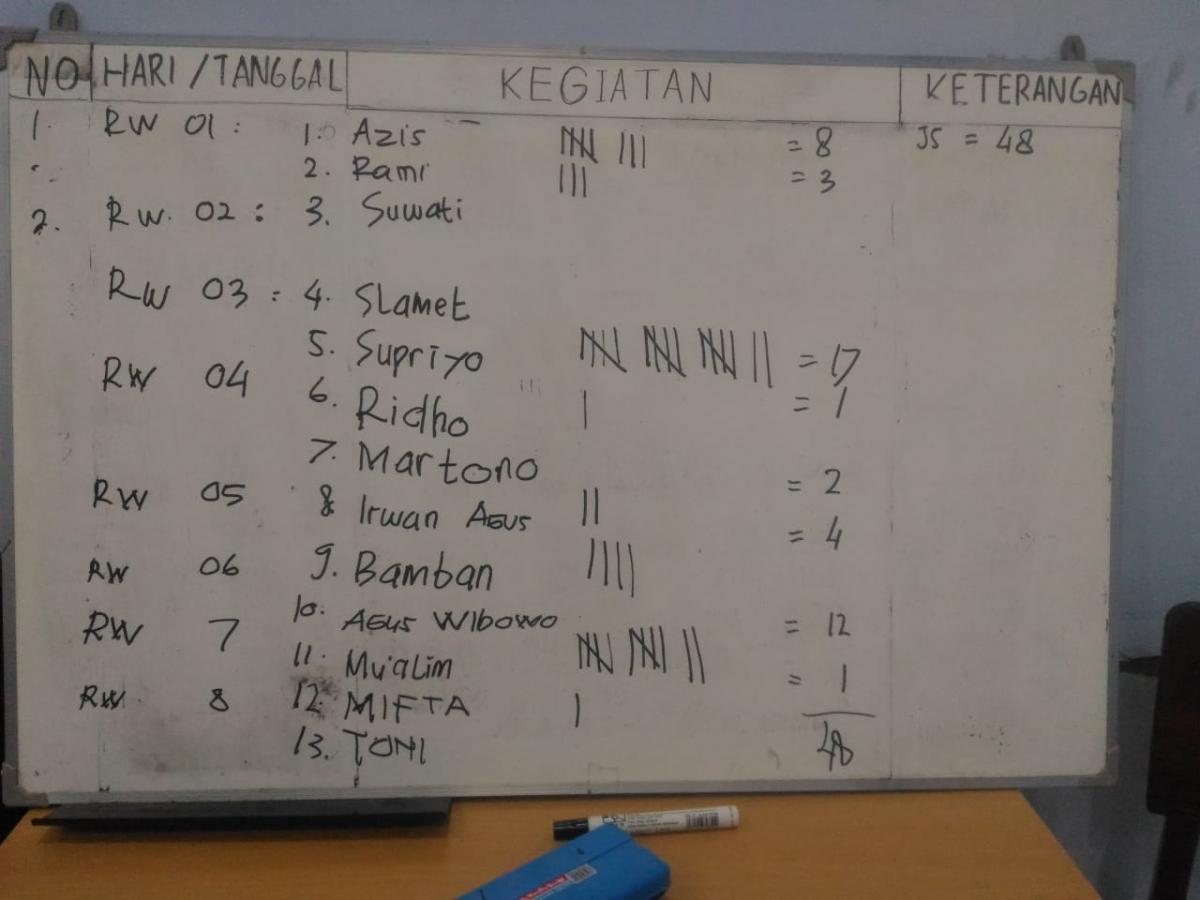 NO HARI/TANGGAL KEGIATAN KETERANGAN
1. RW 01 : 1. Azis = 8 JS = 48
2. Rami = 3
2. RW. 02 : 3. Suwati
RW 03 : 4. Slamet
5. Supriyo = 17
RW 04
6. Ridho = 1
7. Martono
= 2
RW 05 8 Irwan Agus
= 4
RW 06 9. Bamban
10. Agus Wibowo = 12
RW 7
11. Mu'alim = 1
RW 8 12. MIFTA
13. TONI 48